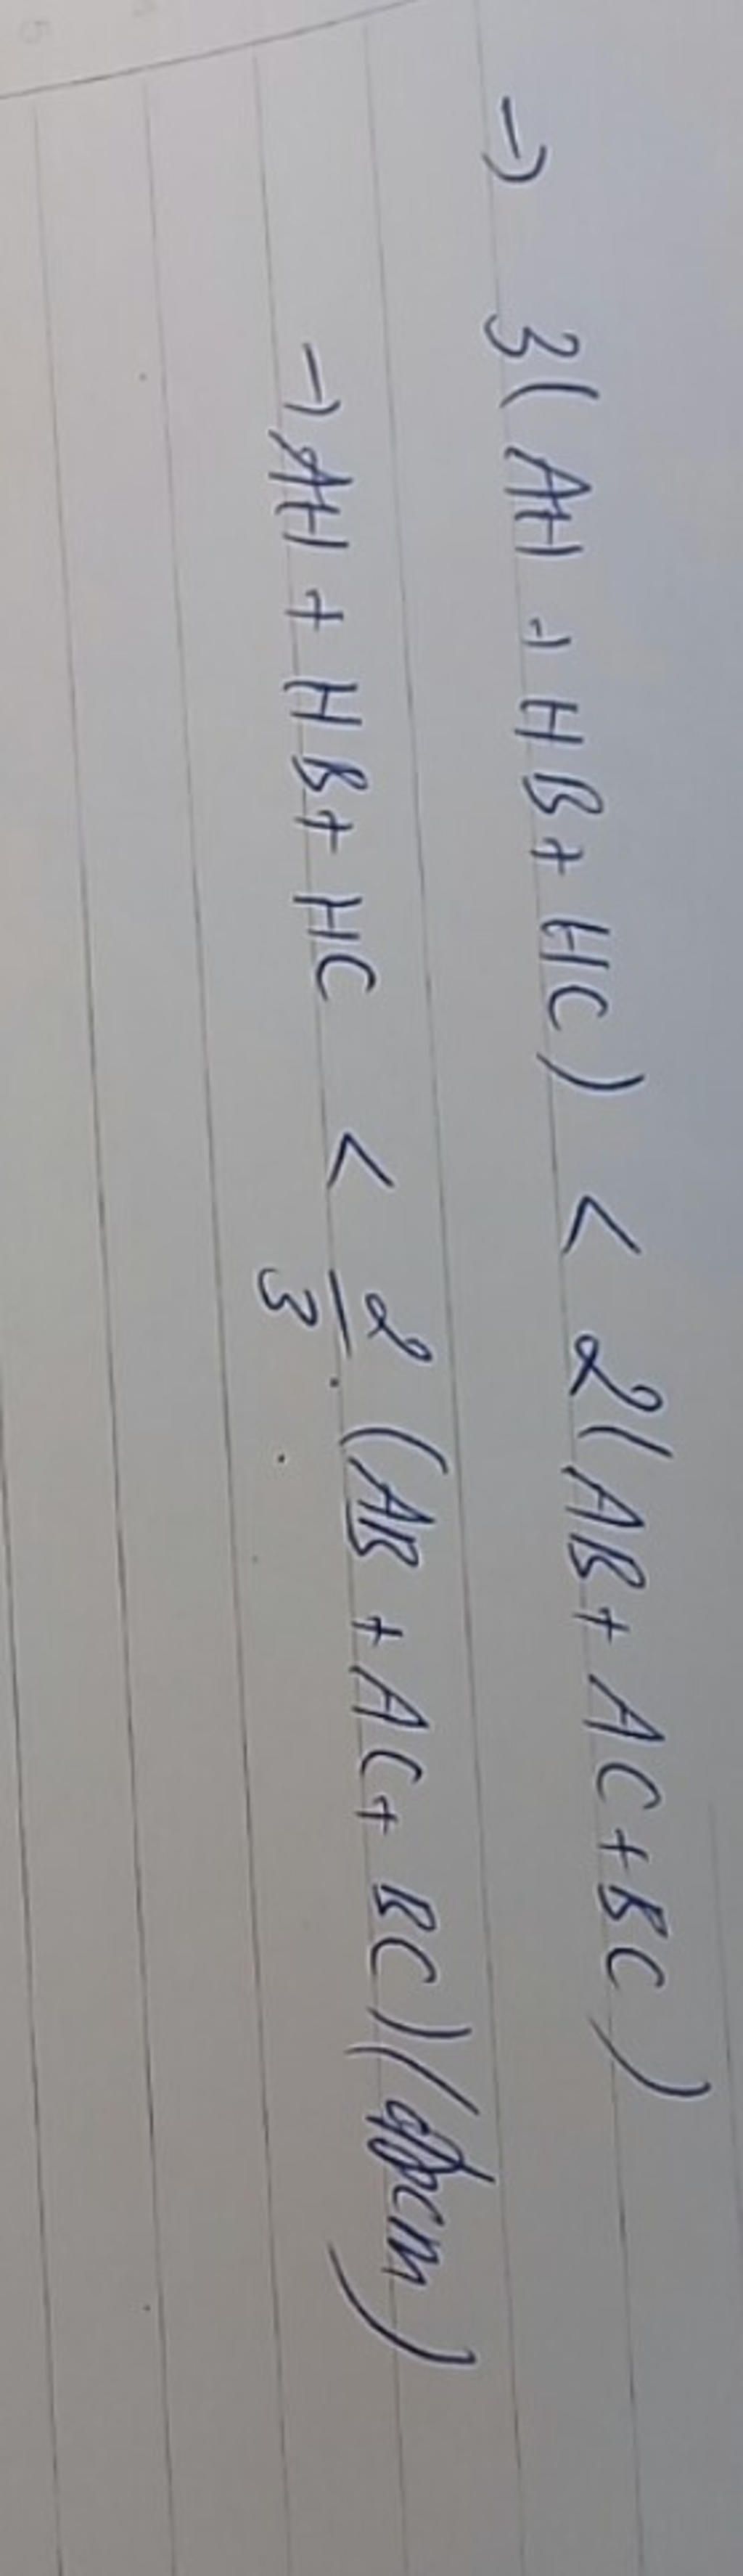 → 3(AH + HB + HC) < 2(AB + AC + BC)
→ AH + HB + HC < 2/3 . (AB + AC + BC) (đpcm)